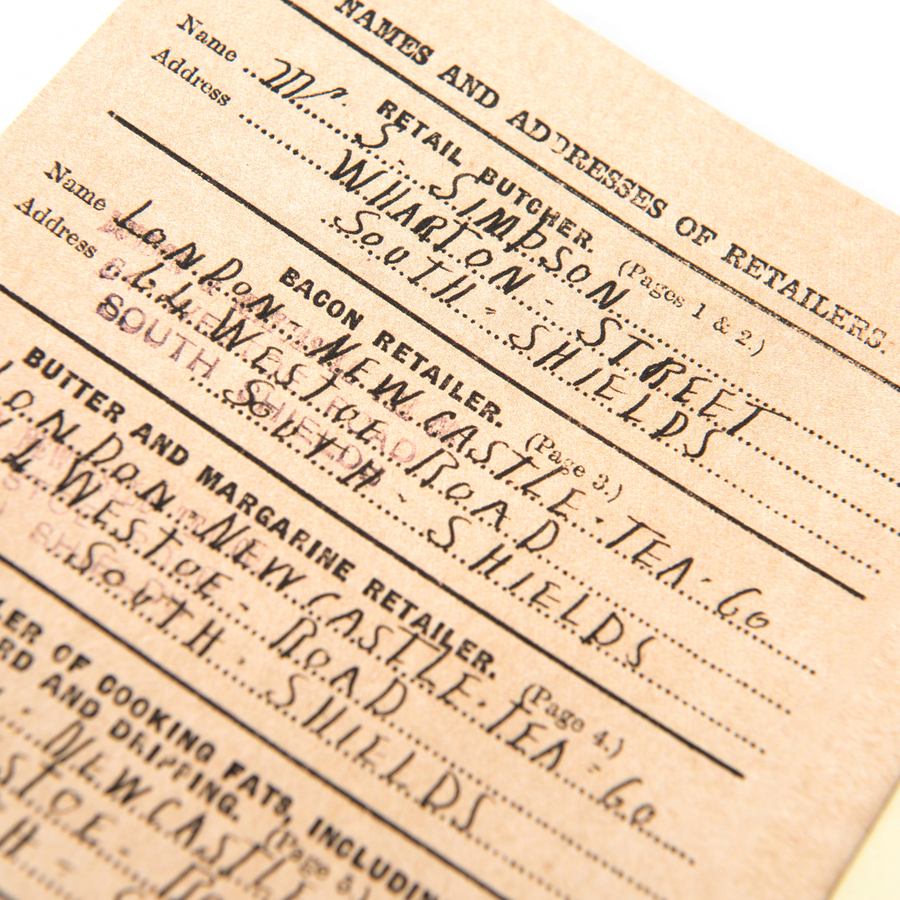 NAMES AND ADDRESSES OF RETAILERS.
RETAIL BUTCHER. (Pages 1 & 2.)
Name Mr. S. SIMPSON
Address WHARTON - STREET
SOUTH - SHIELDS
BACON RETAILER. (Page 3.)
Name LONDON. NEWCASTLE. TEA. Co
Address WESTOE ROAD
SOUTH - SHIELDS
SOUTH SHIELDS
BUTTER AND MARGARINE RETAILER. (Page 4.)
NEWCASTLE. TEA. Co
WESTOE - ROAD
SOUTH. SHIELDS
OF COOKING FATS, INCLUDING
AND DRIPPING. (Page 5.)
NEWCASTLE